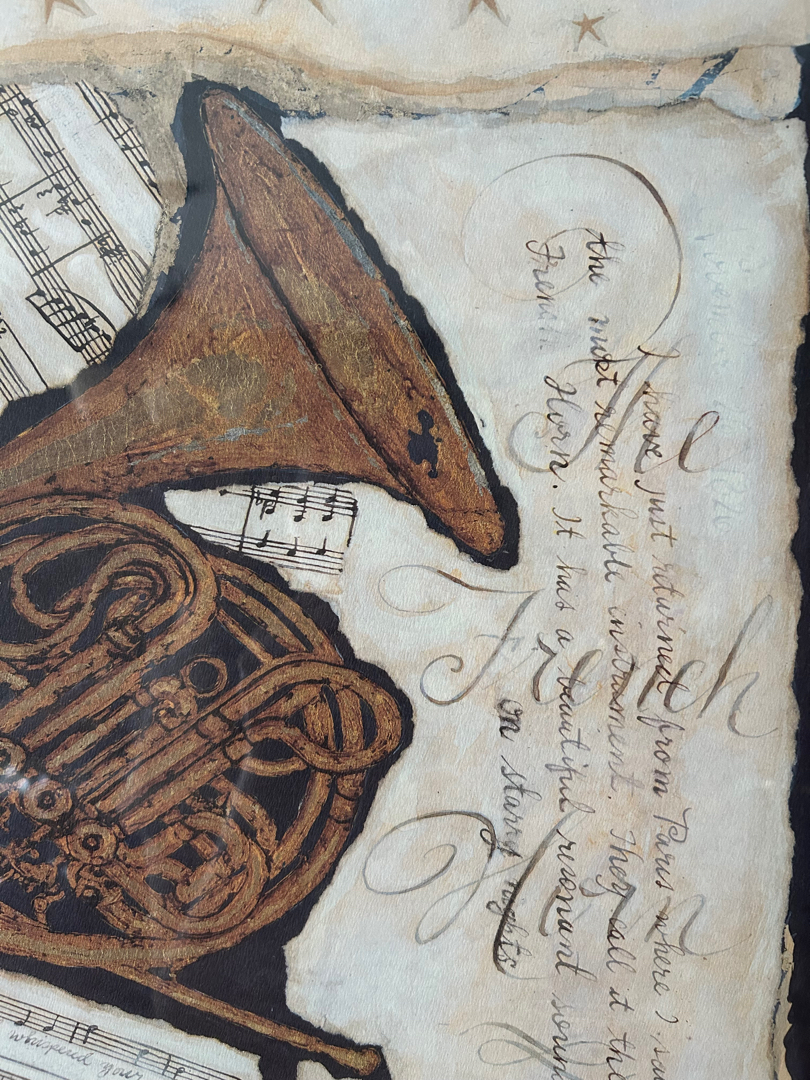 The
French
I have just returned from Paris where I
the most remarkable instrument. They call it the
French Horn. It has a beautiful resonant sound
on starry nights
whispered your